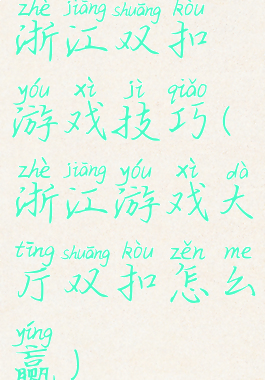 zhè jiāng shuāng kòu
浙江双扣
yóu xì jì qiǎo
游戏技巧(
zhè jiāng yóu xì dà
浙江游戏大
tīng shuāng kòu zěn me
厅双扣怎么
yíng
赢)